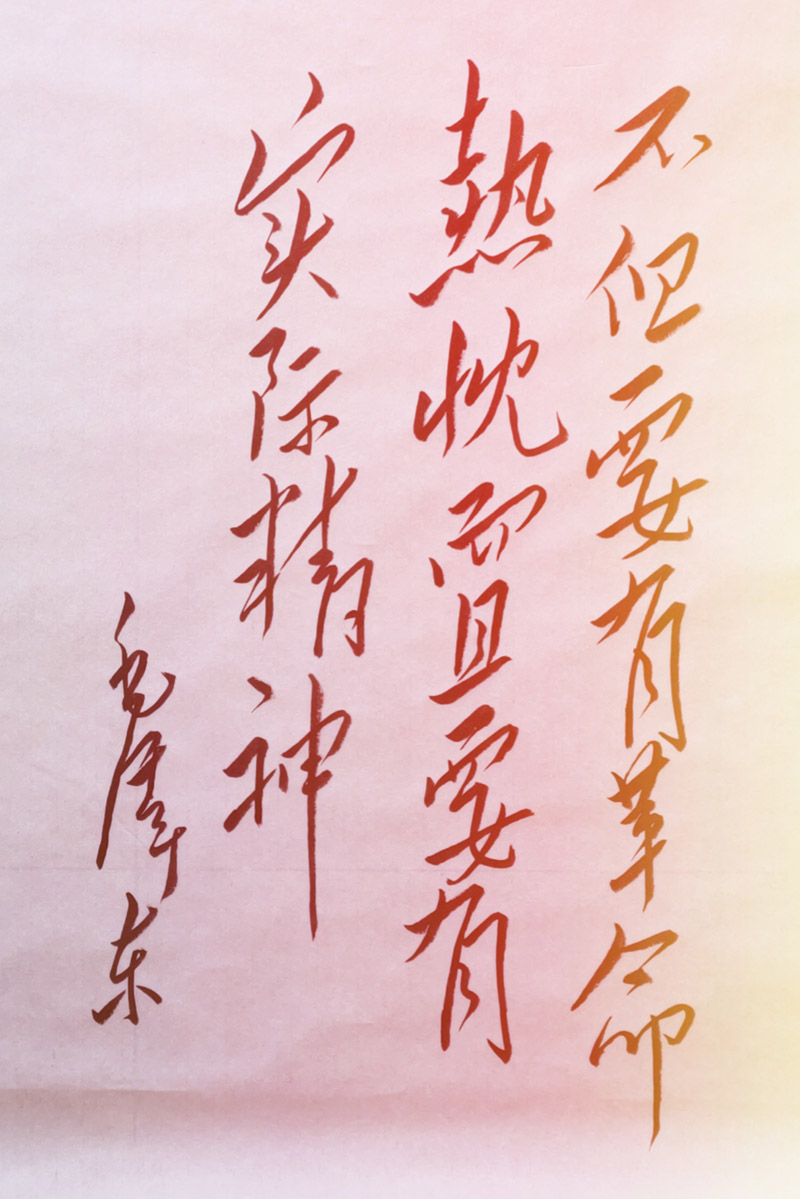 不但要有革命
熱忱而且要有
实际精神
毛泽东